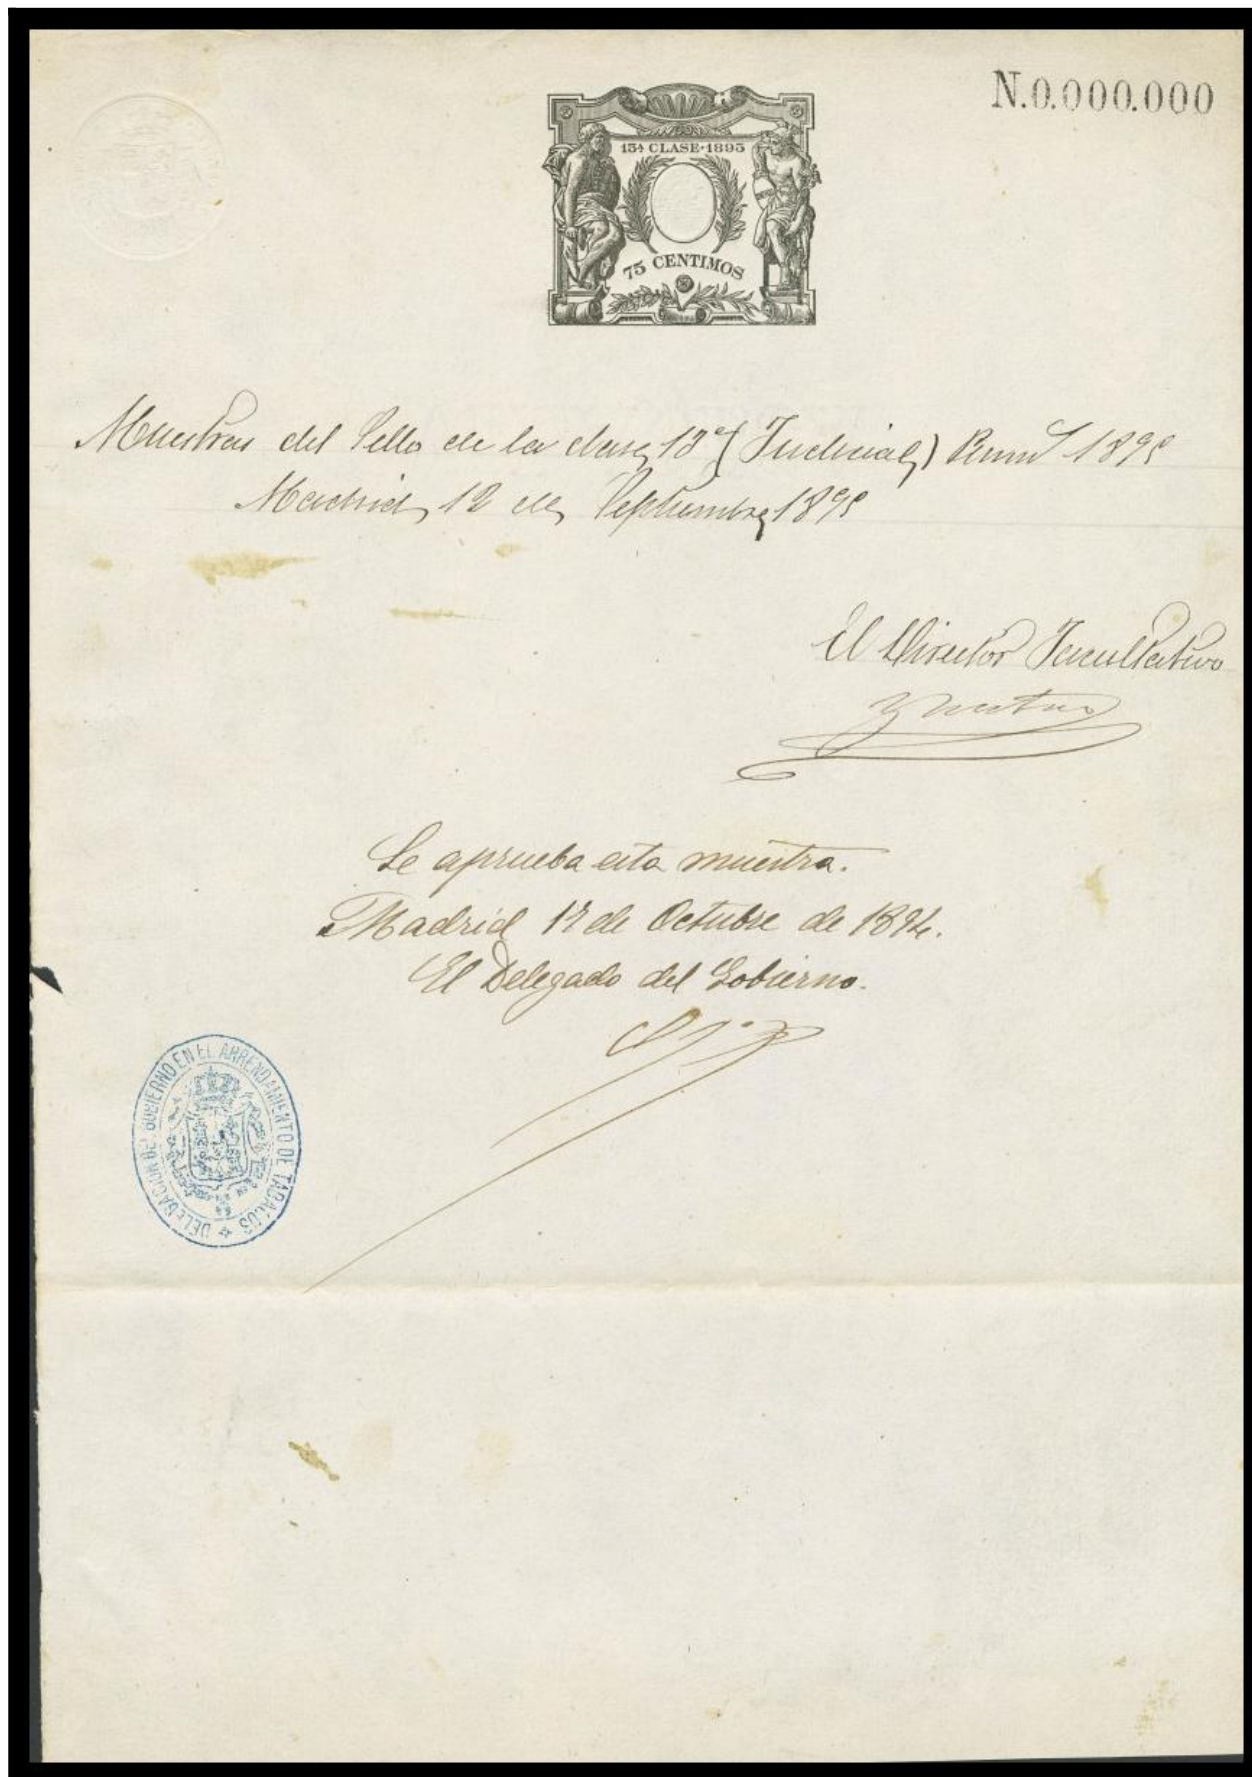 N.0.000.000
13ª CLASE-1895
75 CENTIMOS
Muestras del Sello de la clase 13ª (Judicial) 1895
Madrid, 12 de Septiembre 1895
El Director Facultativo
Se aprueba esta muestra.
Madrid 17 de Octubre de 1894.
El Delegado del Gobierno.
DELEGACION DEL GOBIERNO EN EL ARRENDAMIENTO DE TABACOS